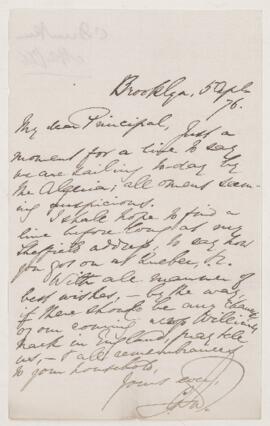 Brooklyn, 5 Apl
76.
My dear Principal, Just a
moment for a line to say
we are sailing to-day by
the Algeria; all omens seem-
ing auspicious.
I shall hope to find a
line before long at my
Sheffield address, to say how
you got on at Quebec, &c.
With all manner of
best wishes, - by the way,
if there should be any chance
of our coming
back in England, pray tell
us, - & all remembrances
to your household,
Yours ever,